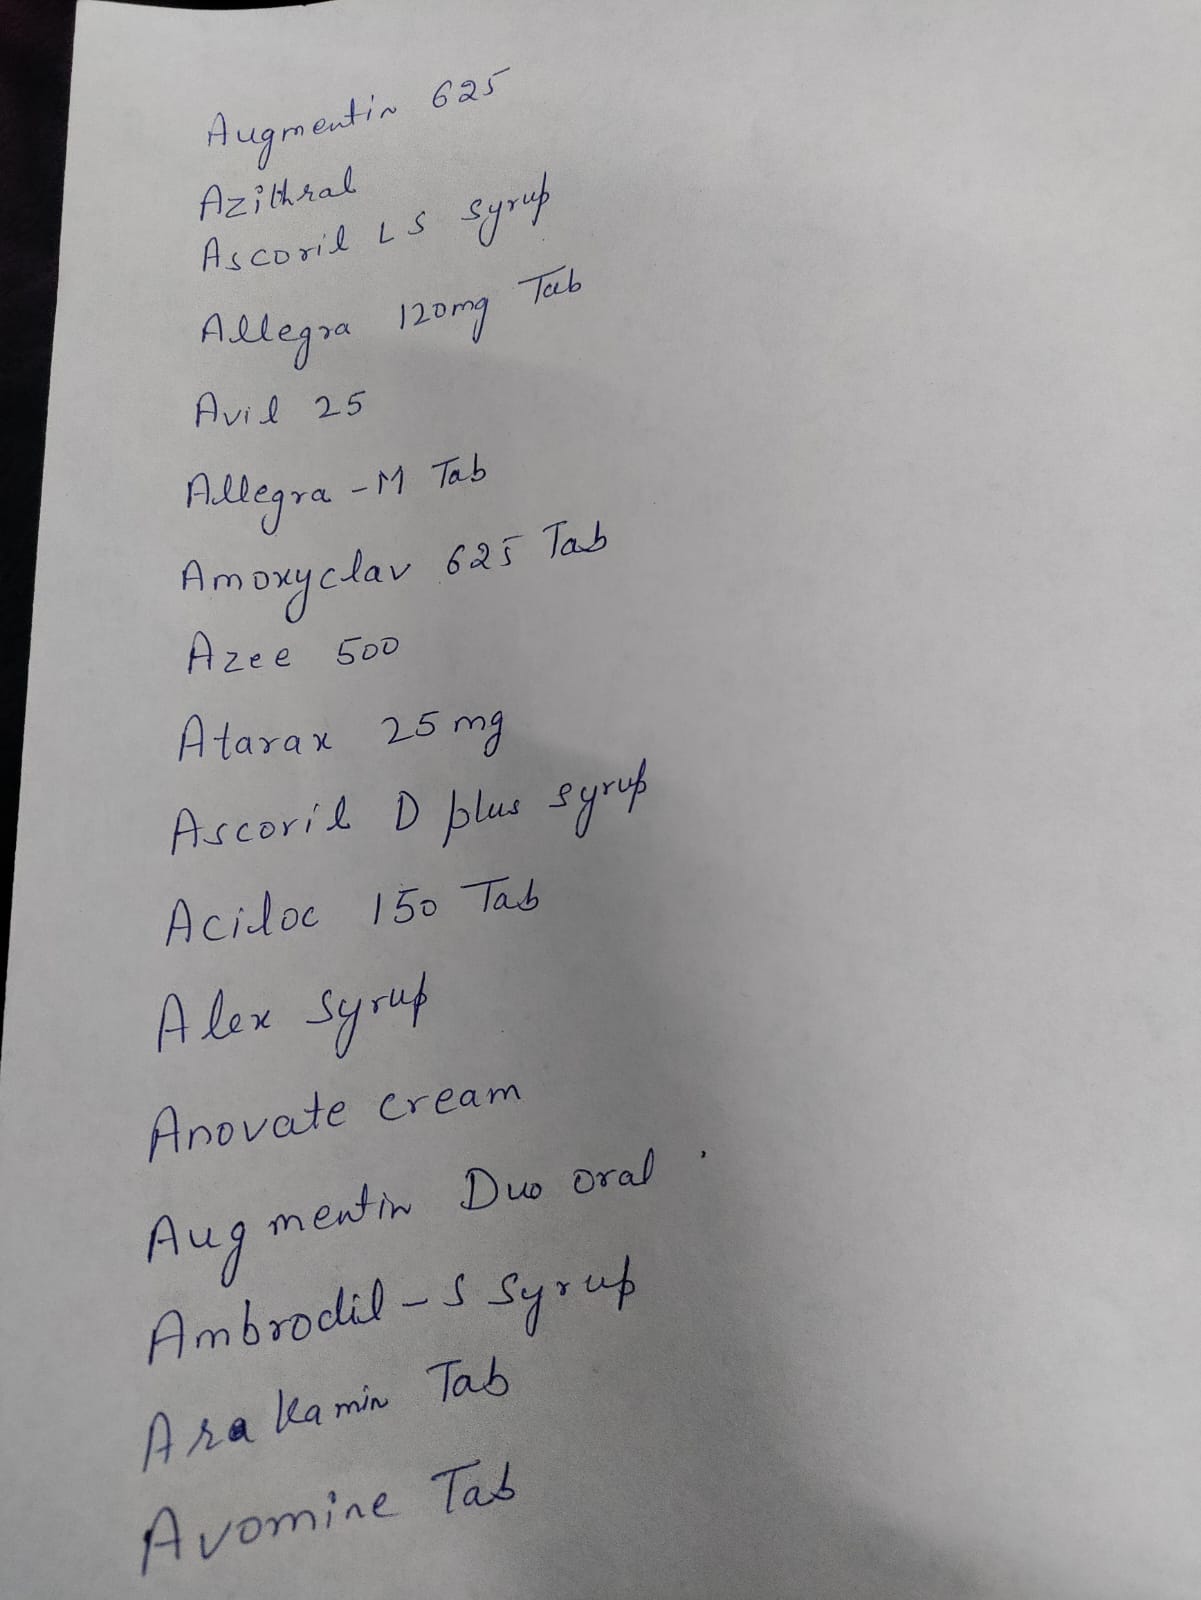 Augmentin 625
Azithral
Ascoril LS Syrup
Allegra 120mg Tab
Avil 25
Allegra-M Tab
Amoxyclav 625 Tab
Azee 500
Atarax 25 mg
Ascoril D plus Syrup
Aciloc 150 Tab
Alex Syrup
Anovate cream
Augmentin Duo oral .
Ambrodil-S Syrup
Arakamin Tab
Avomine Tab